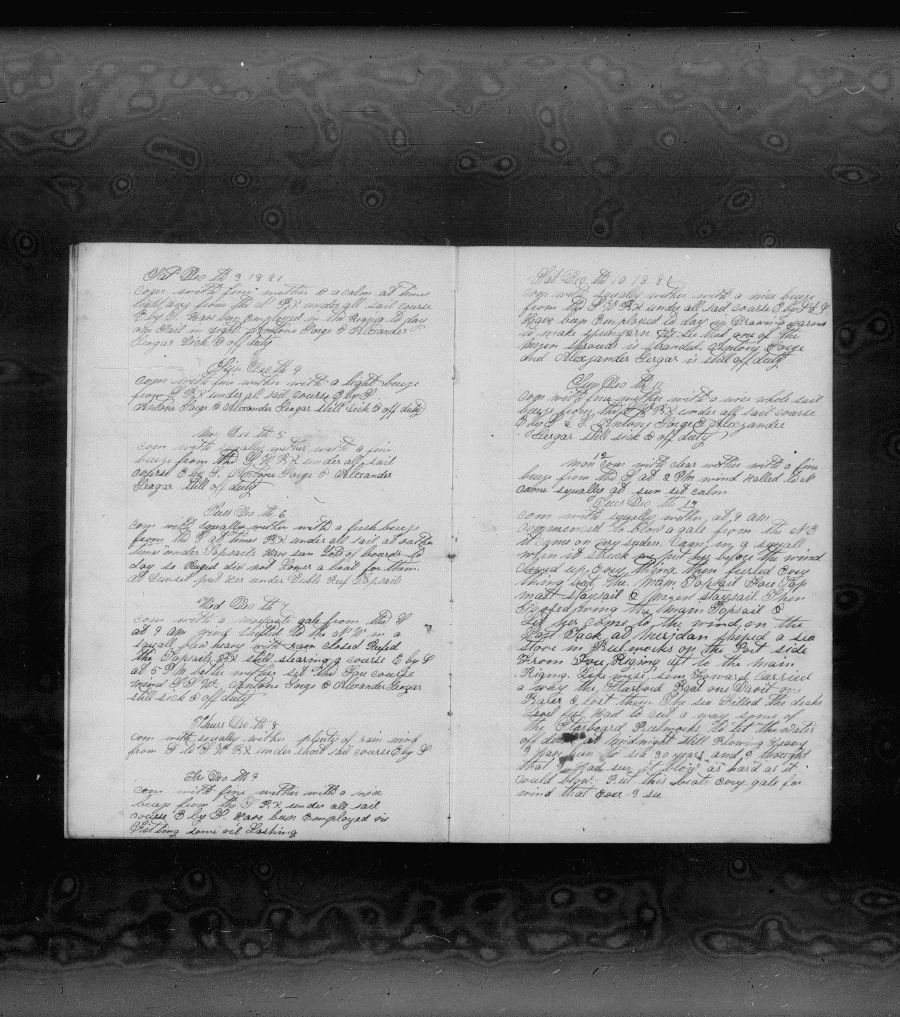 Sat Dec th 3 1881
com with fine wether & a calm at times
light ary from the N  under all sail course
E by S. Have bun employed in the Riging to day
 in sight Antone  & Alexander
 sick & off duty
Sun Dec th 4
com with fine wether with a light breze
from S  under all sail course E by S
Antone  & Alexander  still sick & off duty
Mon Dec th 5
com with squaly wether with a fine
breze from the S W  under all sail
course E by S. Antone  & Alexander
 still off duty
Tues Dec th 6
com with squally wether with a fresh breeze
from the S at times  under all sail at
times under Topsails Have sun lots of boards to
day so Ruged did not Lower a boat for them
at Sunset put Her under Duble Reef Topsails
Wed Dec th 7
com with a modirate gale from the S
at 9 Am wind shifted to the N W in a
squall flew heavy with rain closed Reefed
the Topsails  still stearing a course E by S
at 5 PM better wether set the Fore course
wind S S W. Antone  & Alexander
still sick & off duty
Thurs Dec th 8
com with squaly wether plenty of rain wind
from S to S W  under short sail course E by S
Fri Dec th 9
com with fine wether with a nice
breze from the S  under all sail
course E by S. Have been employed in
 some oil Lashing
Sat Dec th 10 1881
com with squally wether with a nice breeze
from the  under all sail course E by S & S
Have been Employed to day in Drawing yarns
to make spunyarn  one of the
mizen shrouds is stranded. Antony
and Alexander  is still off duty
Sun Dec th 11
com with fine wether with a nice whole sail
breze from the  under all sail course
E by S & S. Antony  & Alexzander
 still sick & off duty
12
Mon com with clear wether with a fine
breze from the S at 2 PM wind Halled to N
came squalley at sun set calm
Tues Dec th 13
com with squally wether, at 9 am
commenced to blow a gale from the N E
it came on very suden. Came in a squall
when it struck we put her before the wind
clewed up Evry thing. then furled Evry
thing but the Main Topsail Fore Top
matt staysail & Mizen staysail. Then
 the Main Topsail &
let her come to the wind, on the
Port Tack, at Merydan shiped a sea
stove in Bulworks on the Port side
From Fore Riging aft to the Main
Riging. Like wise, som Foward carried
a way the Starbord Boat one Davit on
 & lost them. The sea Filled the decks
 Had to cut a way some of
the Starboard Bulworks to let the water
off deck at Midnight still Blowing Heavy
I Have bun to sea 30 years and I thought
that I Had sun it blow as hard as it
could blow. But this beats Evry gale for
wind that Ever I see